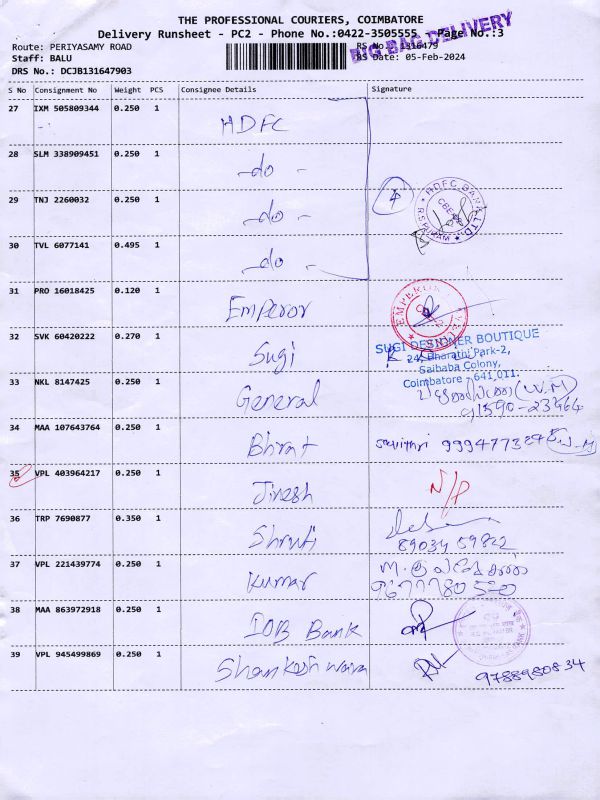 THE PROFESSIONAL COURIERS, COIMBATORE
Delivery Runsheet - PC2 - Phone No.:0422-3505555 - Page No.:3
BIG BAG DELIVERY
Route: PERIYASAMY ROAD RS No.: 1316479
Staff: BALU RS Date: 05-Feb-2024
DRS No.: DCJB131647903
S No Consignment No Weight PCS Consignee Details Signature
27 IXM 505809344 0.250 1 HDFC
28 SLM 338909451 0.250 1 -do-
29 TNJ 2260032 0.250 1 -do- 4 HDFC BANK LTD.
30 TVL 6077141 0.495 1 -do-
31 PRO 16018425 0.120 1 Emperor EMPEROR
32 SVK 60420222 0.270 1 Sugi SUGI DESIGNER BOUTIQUE
24, Bharathi Park-2,
Saibaba Colony,
Coimbatore - 641 011.
33 NKL 8147425 0.250 1 General (W.M)
91590-23464
34 MAA 107643764 0.250 1 Bhrat Savithri
35 VPL 403964217 0.250 1 Jinesh N/P
36 TRP 7690877 0.350 1 Shruti
89034 59822
37 VPL 221439774 0.250 1 Kumar
9677780520
38 MAA 863972918 0.250 1 IOB Bank
39 VPL 945499869 0.250 1 Shankeshwara 9788980834